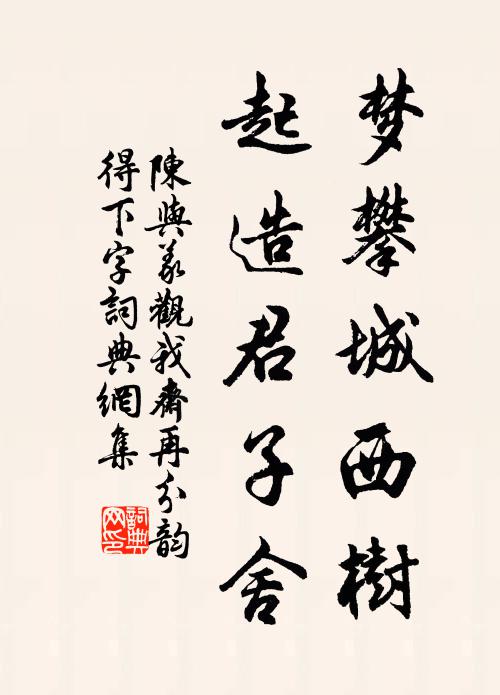 梦攀城西樹
起造君子舍
陳與義觀我齋再分韵
得下字詞典網集
詞典
网印